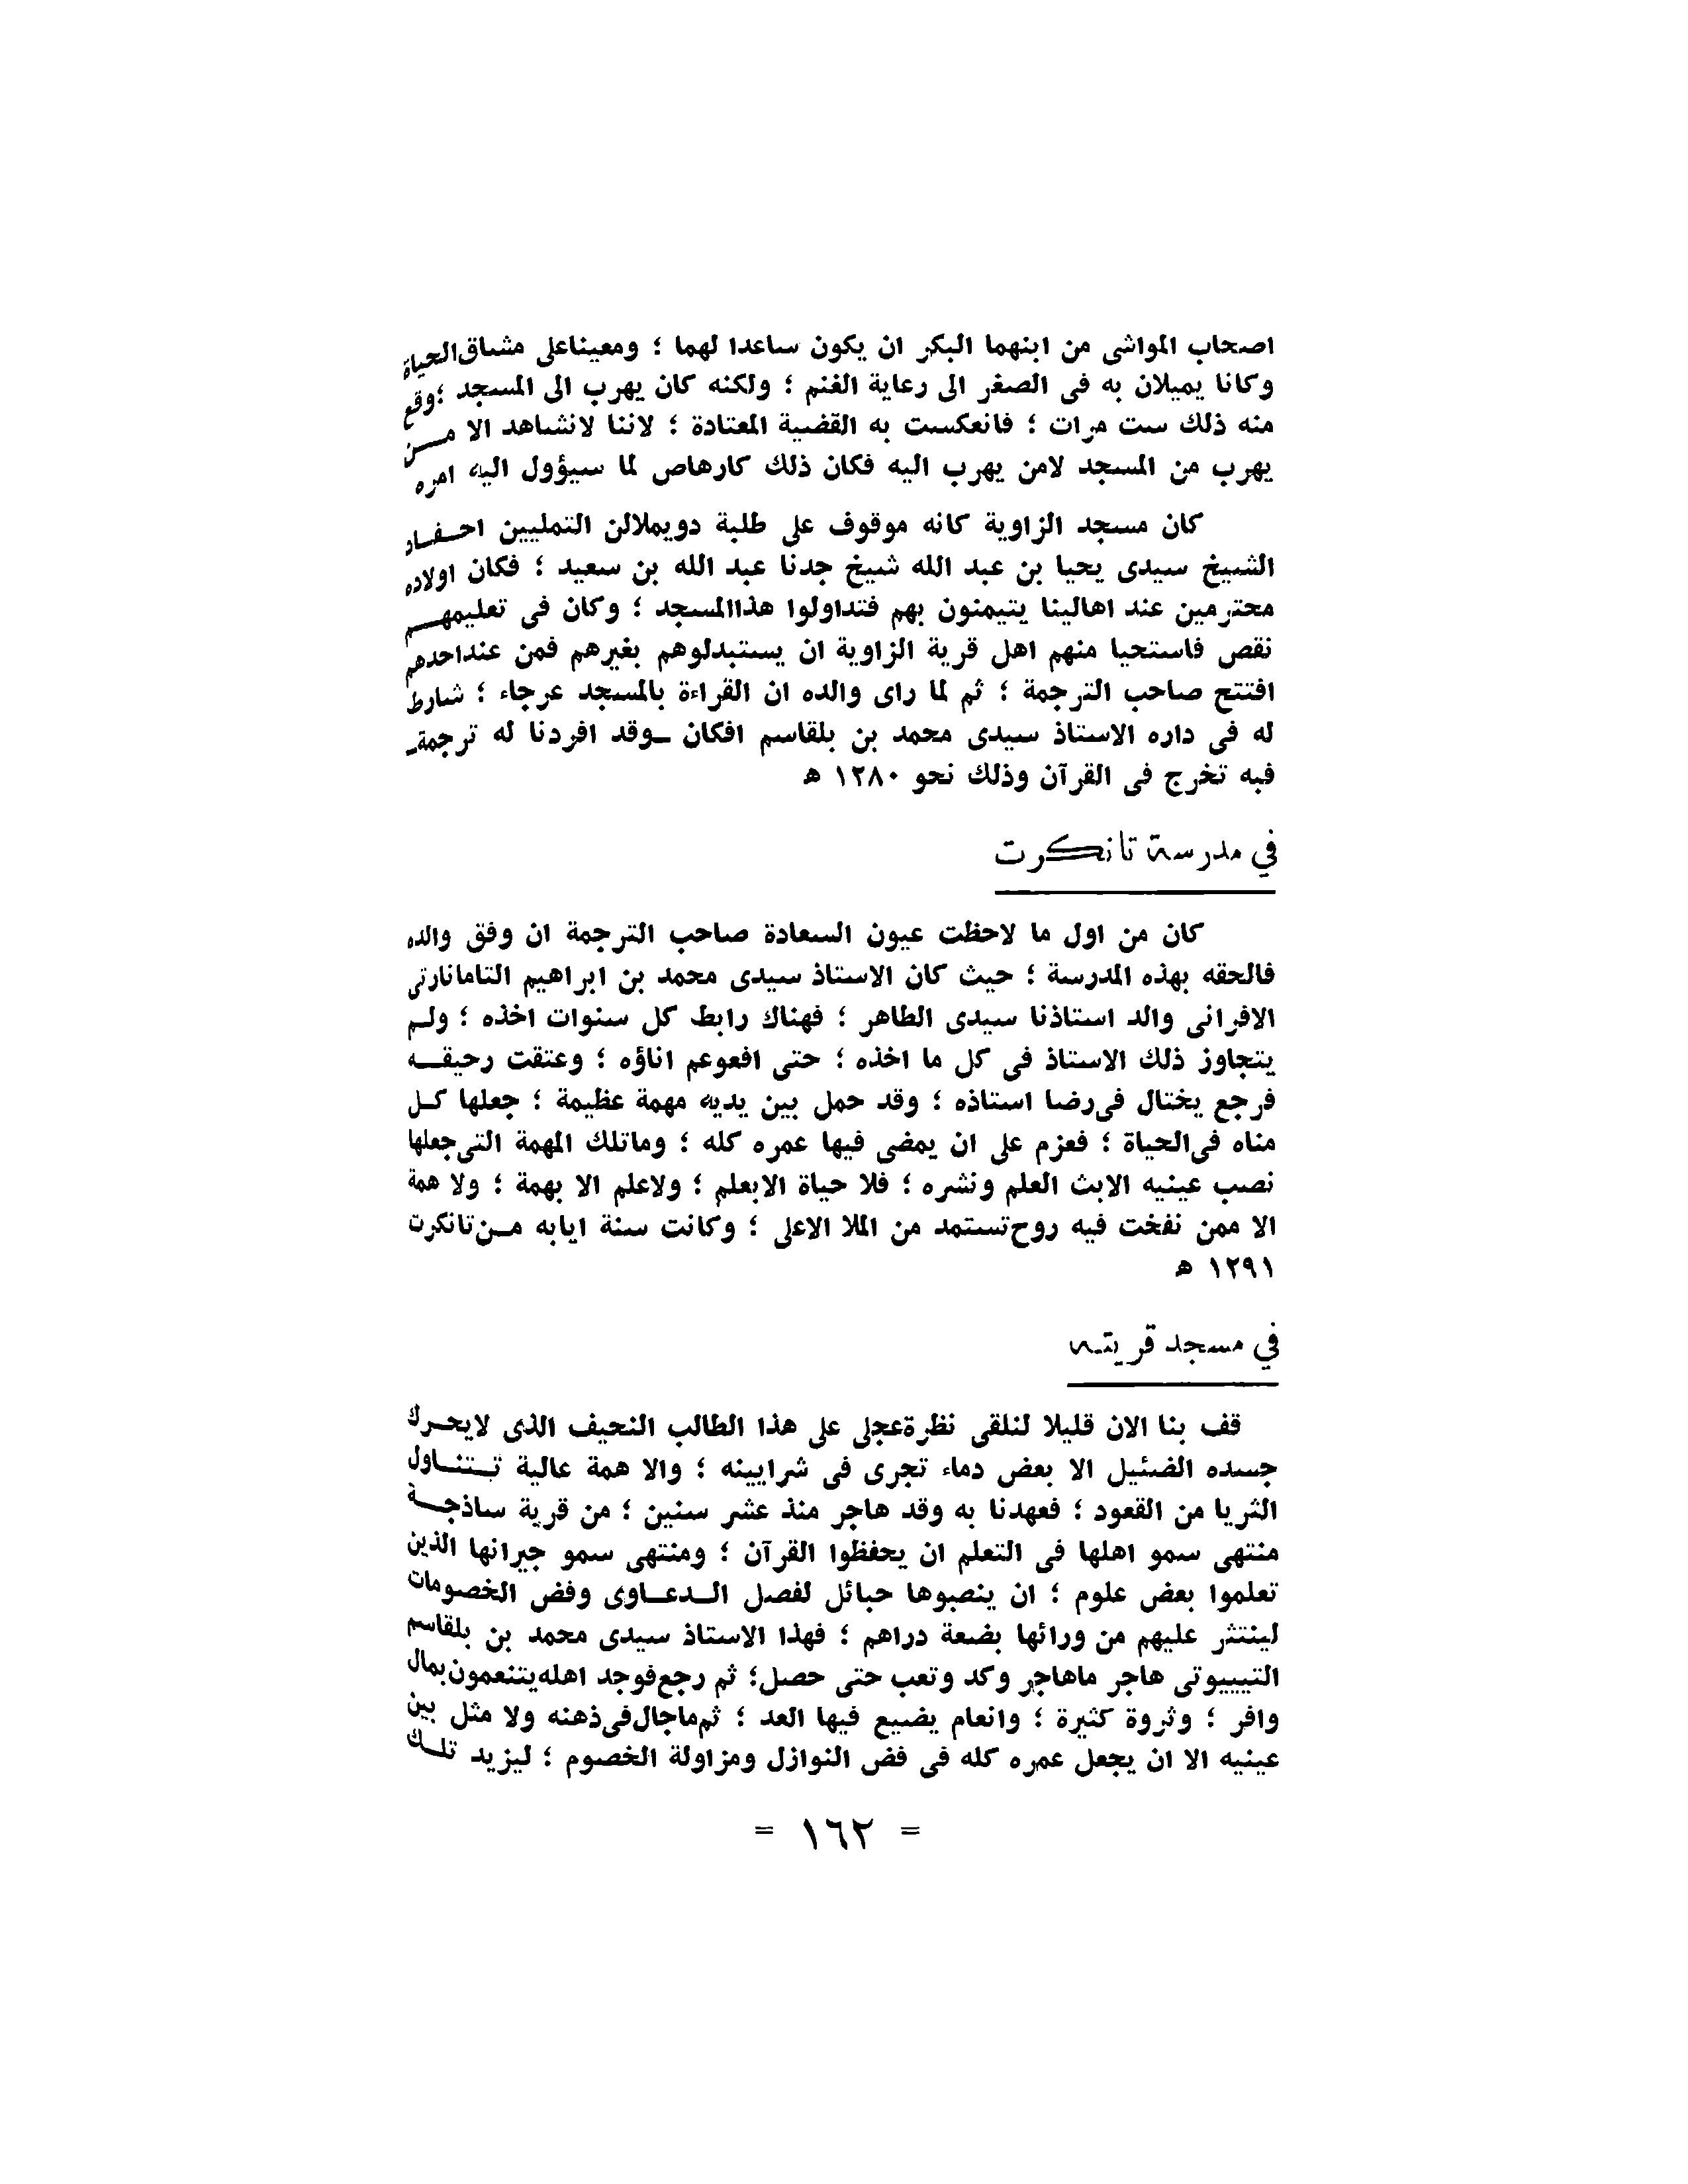 اصحاب المواشى من ابنهما البكر ان يكون ساعدا لهما ؛ ومعيناعلى مشاق الحياة
وكانا يميلان به فى الصغر الى رعاية الغنم ؛ ولكنه كان يهرب الى المسجد ؛ وقع
منه ذلك ست مرات ؛ فانعكست به القضية المعتادة ؛ لاننا لانشاهد الا مـــن
يهرب من المسجد لامن يهرب اليه فكان ذلك كارهاص لما سيؤول اليه امره
كان مسجد الزاوية كانه موقوف على طلبة دويملالن التمليين احـفـاد
الشيخ سيدى يحيا بن عبد الله شيخ جدنا عبد الله بن سعيد ؛ فكان اولاده
محترمين عند اهالينا يتيمنون بهم فتداولوا هذاالمسجد ؛ وكان فى تعليمهــم
نقص فاستحيا منهم اهل قرية الزاوية ان يستبدلوهم بغيرهم فمن عنداحدهم
افتتح صاحب الترجمة ؛ ثم لما راى والده ان القراءة بالمسجد عرجاء ؛ شارط
له فى داره الاستاذ سيدى محمد بن بلقاسم افكان ـوقد افردنا له ترجمةـ
فبه تخرج فى القرآن وذلك نحو ١٢٨٠ ه
في مدرسة تانكرت
كان من اول ما لاحظت عيون السعادة صاحب الترجمة ان وفق والده
فالحقه بهذه المدرسة ؛ حيث كان الاستاذ سيدى محمد بن ابراهيم التامانارتى
الافرانى والد استاذنا سيدى الطاهر ؛ فهناك رابط كل سنوات اخذه ؛ ولـم
يتجاوز ذلك الاستاذ فى كل ما اخذه ؛ حتى افعوعم اناؤه ؛ وعتقت رحيقــه
فرجع يختال فى رضا استاذه ؛ وقد حمل بين يديه مهمة عظيمة ؛ جعلها كـل
مناه فى الحياة ؛ فعزم على ان يمضى فيها عمره كله ؛ وماتلك المهمة التى جعلها
نصب عينيه الابث العلم ونشره ؛ فلا حياة الابعلم ؛ ولاعلم الا بهمة ؛ ولا همة
الا ممن نفخت فيه روح تستمد من الملا الاعلى ؛ وكانت سنة ايابه مـن تانكرت
١٢٩١ ه
في مسجد قريته
قف بنا الان قليلا لنلقى نظرةعجلى على هذا الطالب النحيف الذى لايحـرك
جسده الضئيل الا بعض دماء تجرى فى شرايينه ؛ والا همة عالية تـتنـاول
الثريا من القعود ؛ فعهدنا به وقد هاجر منذ عشر سنين ؛ من قرية ساذجــة
منتهى سمو اهلها فى التعلم ان يحفظوا القرآن ؛ ومنتهى سمو جيرانها الذين
تعلموا بعض علوم ؛ ان ينصبوها حبائل لفصل الـدعـاوى وفض الخصومات
لينتثر عليهم من ورائها بضعة دراهم ؛ فهذا الاستاذ سيدى محمد بن بلقاسم
التييبوتى هاجر ماهاجر وكد وتعب حتى حصل؛ ثم رجع فوجد اهله يتنعمون بمال
وافر ؛ وثروة كثيرة ؛ وانعام يضيع فيها العد ؛ ثم ماجال فى ذهنه ولا مثل بين
عينيه الا ان يجعل عمره كله فى فض النوازل ومزاولة الخصوم ؛ ليزيد تلـك
= ١٦٢ =